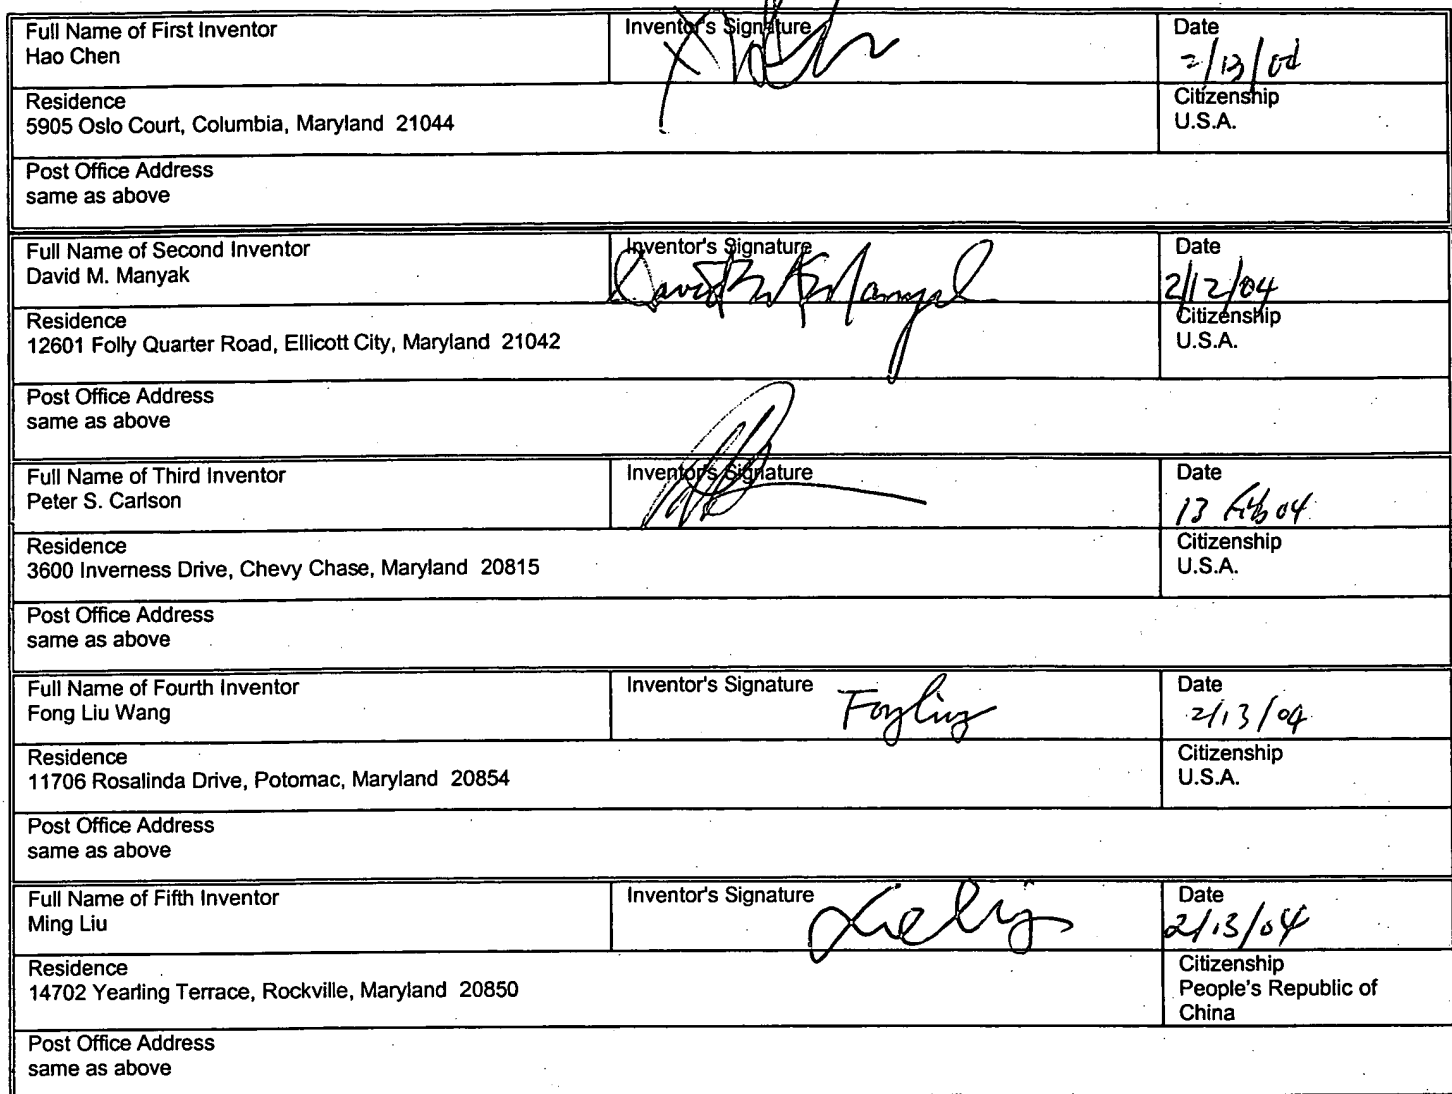 Full Name of First Inventor
Hao Chen
Inventor's Signature
Date
2/13/04
Residence
5905 Oslo Court, Columbia, Maryland 21044
Citizenship
U.S.A.
Post Office Address
same as above
Full Name of Second Inventor
David M. Manyak
Inventor's Signature
Date
2/12/04
Residence
12601 Folly Quarter Road, Ellicott City, Maryland 21042
Citizenship
U.S.A.
Post Office Address
same as above
Full Name of Third Inventor
Peter S. Carlson
Inventor's Signature
Date
13 Feb 04
Residence
3600 Inverness Drive, Chevy Chase, Maryland 20815
Citizenship
U.S.A.
Post Office Address
same as above
Full Name of Fourth Inventor
Fong Liu Wang
Inventor's Signature
Date
2/13/04
Residence
11706 Rosalinda Drive, Potomac, Maryland 20854
Citizenship
U.S.A.
Post Office Address
same as above
Full Name of Fifth Inventor
Ming Liu
Inventor's Signature
Date
2/13/04
Residence
14702 Yearling Terrace, Rockville, Maryland 20850
Citizenship
People's Republic of
China
Post Office Address
same as above